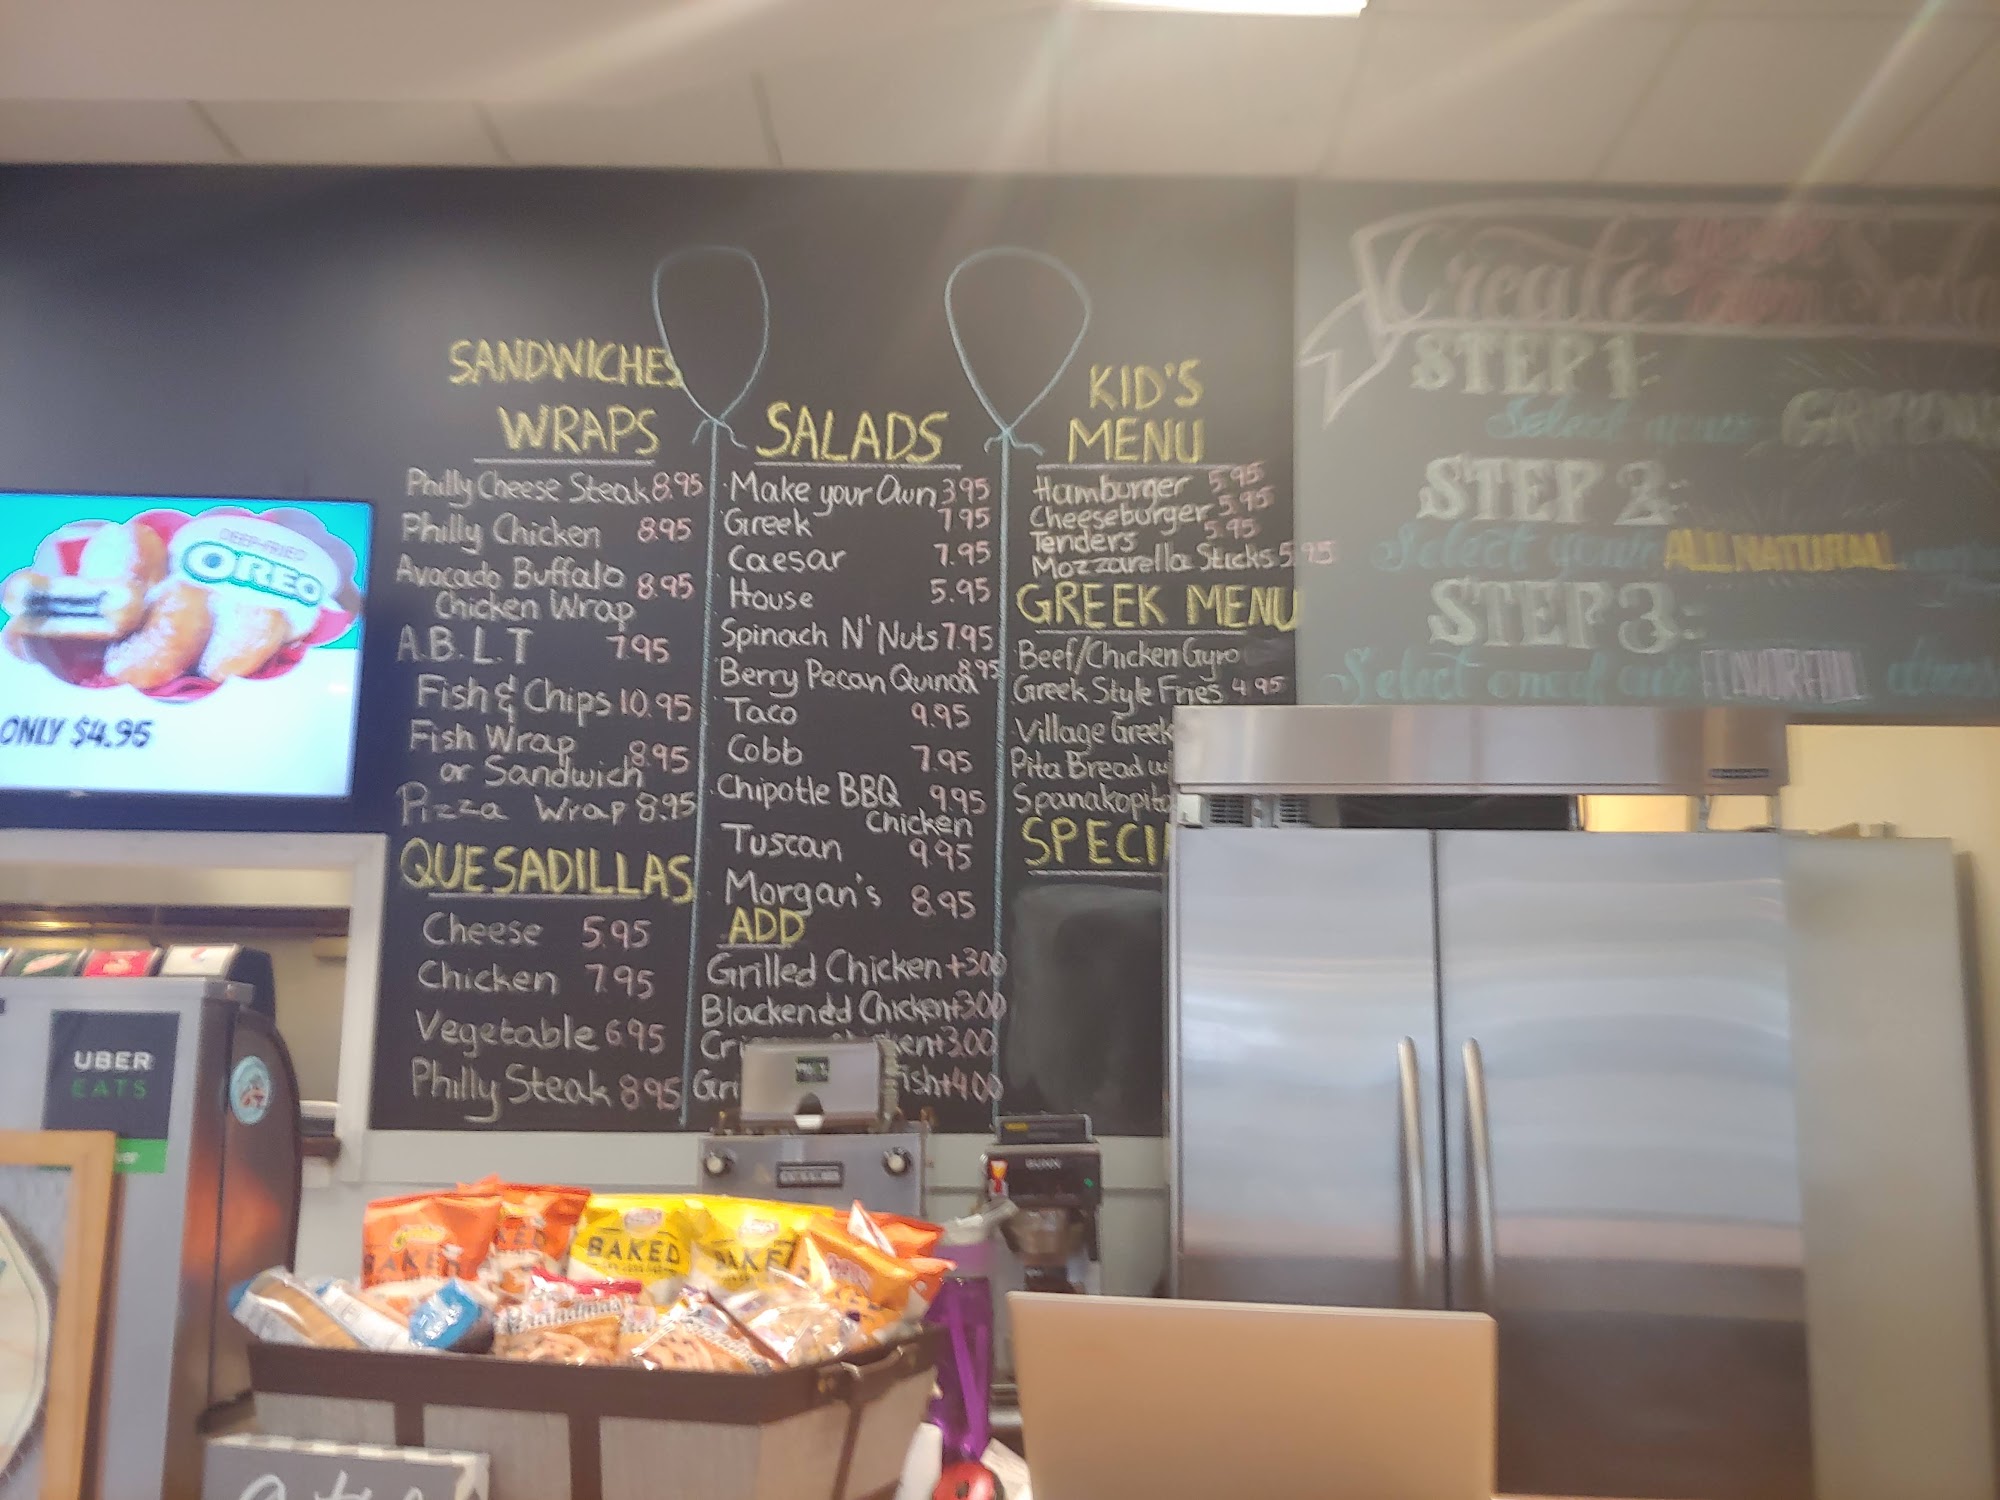 DEEP-FRIED
OREO
ONLY $4.95
UBER
EATS
SANDWICHES
WRAPS
Philly Cheese Steak 8.95
Philly Chicken 8.95
Avocado Buffalo
Chicken Wrap 8.95
A.B.L.T 7.95
Fish & Chips 10.95
Fish Wrap
or Sandwich 8.95
Pizza Wrap 8.95
QUESADILLAS
Cheese 5.95
Chicken 7.95
Vegetable 6.95
Philly Steak 8.95
SALADS
Make your Own 3.95
Greek 7.95
Caesar 7.95
House 5.95
Spinach N' Nuts 7.95
Berry Pecan Quinoa 8.95
Taco 9.95
Cobb 7.95
Chipotle BBQ 9.95
Chicken
Tuscan 9.95
Morgan's 8.95
ADD
Grilled Chicken +3.00
Blackened Chicken +3.00
+3.00
+4.00
KID'S
MENU
Hamburger 5.95
Cheeseburger 5.95
Tenders 5.95
Mozzarella Sticks 5.95
GREEK MENU
Beef/Chicken Gyro
Greek Style Fries 4.95
Village Greek
Pita Bread
Spanakopita
Create Your Own
STEP 1:
Select your
STEP 2:
Select your ALL NATURAL
STEP 3:
Select one of our FLAVORFUL
BAKED
BAKED
BUNN